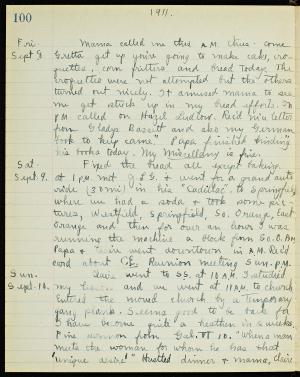 100
1911.
Fri. Mama called me this A.M. thus- "come
Sept 8 Gretta get up you're going to make cake, cro-
quettes, corn fritters and bread today." The
croquettes were not attempted but the others
turned out nicely. It amused mama to see
me get stuck up in my bread efforts. In
P.M. called on Hazel Ludlow. Rec'd nice letter
from Gladys Bassitt and also my German
book to keep came. Papa finished binding
his books today. My Miscellany is fine.
Sat. Fixed the bread all except baking.
Sept 9. at 1 P.M. met G & S. & went for a grand auto
ride (30 mi) in his "Cadillac". to Springfield
where we had a soda & took some pic-
tures, Westfield, Springfield, So. Orange, East
Orange and then for over an hour I was
running the machine a block from
Papa & downtown in A.M. Rec'd
card about C.E. Reunion meeting Sun. P.M.
Sun. Claire went to S.S. at 10 A.M. I studied
Sept. 10. my and we went at 11 A.M. to church
Entered the moved church by a temporary
gang plank. Seems good to be back for
I have become quite a heathen in 2 weeks.
Fine sermon from Gal. 10. "When a man
meets the woman for whom he has that
'unique desire'" Hustled dinner & mama, Claire